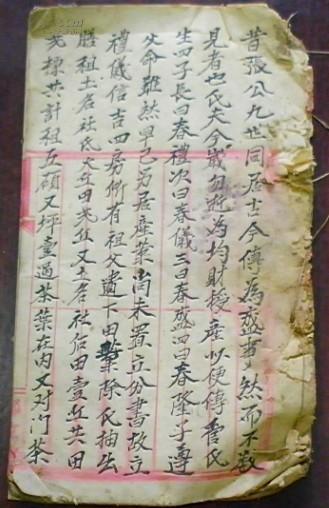 昔張公九世同居古今傳為盛事然而不敢
見者也氏夫今歲勿逝為均財授產以便傳管氏
生四子長曰春禮次曰春儀三曰春盛四曰春隆子遵
父命雖然早已另居產業尚未置立分書故立
禮儀信吉四房所有祖父遺下田業除氏抽出
膳祖土名社氏大丘田弍丘又土名社后田壹丘共田
弍揀共計祖五碩又坪壹過茶葉在內又对门茶